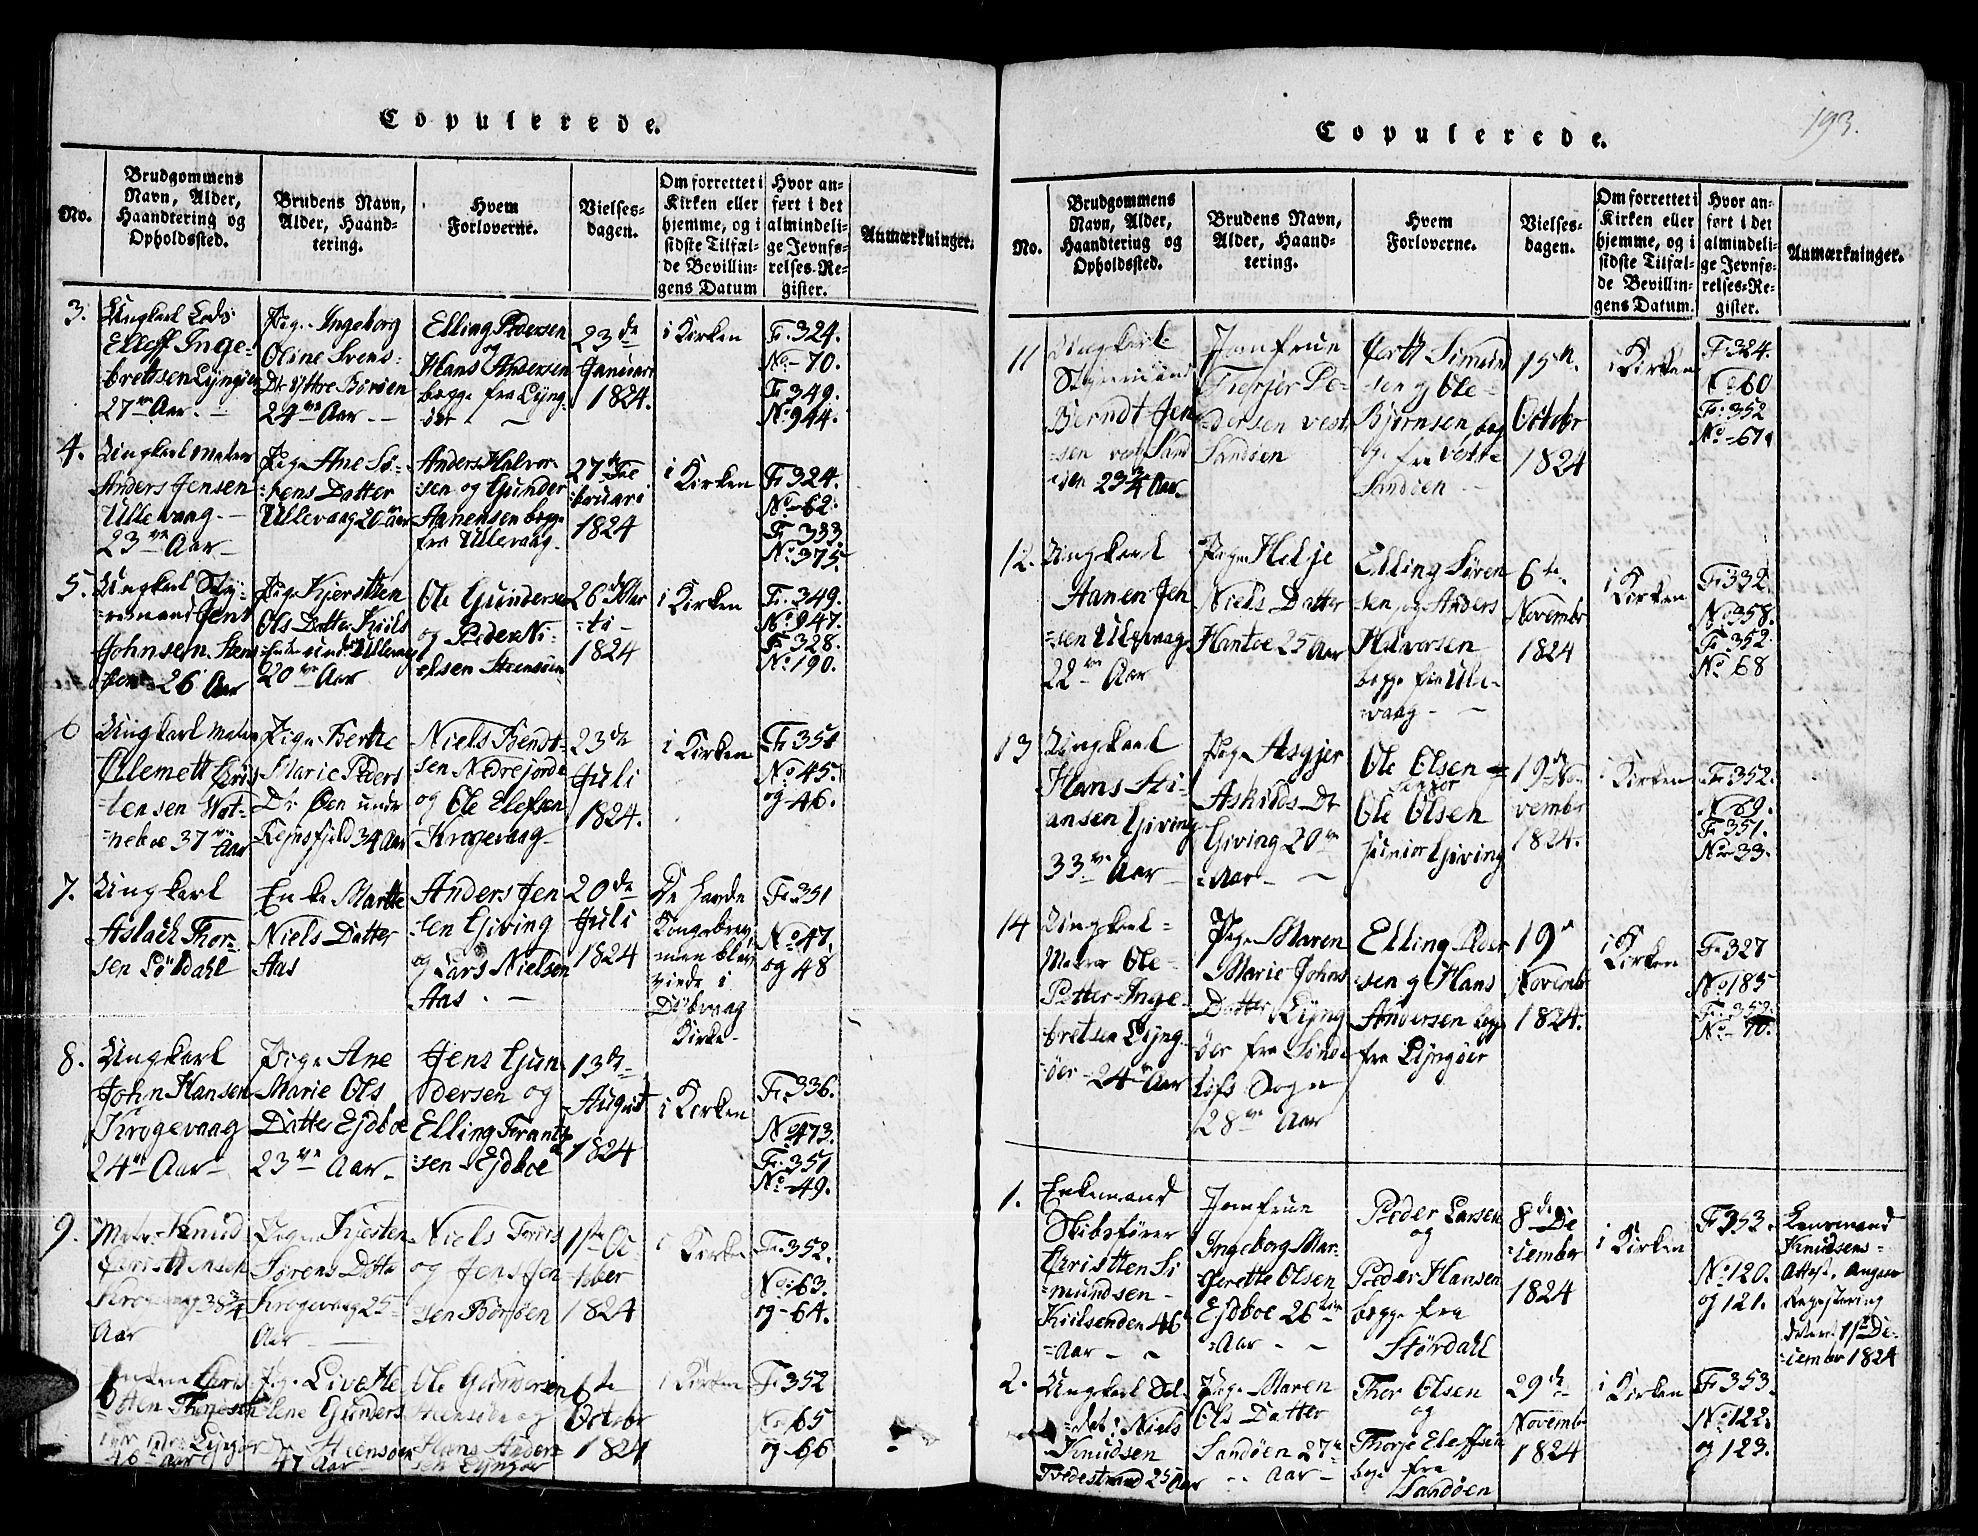 Copulerede.
No.
Brudgommens Navn, Alder, Haandtering og Opholdssted.
Brudens Navn, Alder, Haandtering.
Hvem Forloverne.
Vielsesdagen.
Om forrettet i Kirken eller hjemme, og i sidste Tilfælde Bevillingens Datum
Hvor anført i det almindelige Jevnførelses-Register.
Anmærkninger.
3.
Ungkarl Lods
Elleff Inge-
brettsen Lyngøer
27 Aar.
Pige Ingeborg
Oline Svens-
Dr Yttre Borøen
24 Aar
Elling Pedersen
og
Hans Andersen
begge fra Lyng-
øer
23de
Januari
1824.
i Kirken
F. 324.
No 70.
F. 349.
No 944.
4.
Ungkarl Matros
Anders Jensen
Ullevaag.
23 Aar
Pige Ane Sø-
rens Datter
Ullevaag 20 Aar
Anders Halvor-
sen og Gunder
Aanensen begge
fra Ullevaag.
27de Fe
bruari
1824
i Kirken
F. 324.
No 62.
F. 333.
No. 375.
5.
Ungkarl Sty-
remand Jens
Johnsen Stens
26 Aar
Pige Kjersten
Ols Datter
20 Aar
Ole Gundersen
og Peder Ni-
elsen Steensøen
26 Mar
ti
1824
i Kirken
F. 349.
No 947.
F. 328.
No. 190.
6
Ungkarl Matros
Clemett Chris
tensen Wat-
neboe 37 Aar
Pige Berthe
Marie Peders
Dr Øen under
34 Aar
Niels Bendt-
sen Nedrejorde
og Ole Elefsen
Krogevaag
23de
Juli
1824.
i Kirken
F. 351
No 45.
og 46.
7.
Ungkarl
Aslach Thor-
sen Løvdahl
Enke Marthe
Niels Datter
Aas
Anders Jen
sen Giving
og Lars Nielsen
Aas.
20de
Juli
1824
De havde
Kongebrev
men blev
viede i
Dybvaag
Kirke
F. 351
No 47.
og 48
8.
Ungkarl
John Hansen
Krogevaag
24 Aar
Pige Ane
Marie Ols
Datter Ejdboe
23 Aar
Jens Gun
dersen og
Elling Frants
sen Ejdboe
13de
August
1824
i Kirken
F. 336.
No 473.
F. 351
No 49.
9.
Matr. Knud
Christensen
Krogevaag 38 3/4
Aar
Pige Kjesten
Sørens Datte
Krogevaag 25
Aar
Niels
og Jens Jen
sen Borøen
1ste Oc
tober
1824
i Kirken
F. 352.
No. 63.
og 64.
Thomesen
Lyngør
46 Aar
Pige Livethe
Lene Gunders
Dr Steensøen
47 Aar
Ole Gundersen
Steensøen og
Hans Ander-
sen Lyngør
Octobr
1824
i Kirken
F. 352
No 65
og 66
193.
Copulerede.
No.
Brudgommens Navn, Alder, Haandtering og Opholdssted.
Brudens Navn, Alder, Haandtering.
Hvem Forloverne.
Vielsesdagen.
Om forrettet i Kirken eller hjemme, og i sidste Tilfælde Bevillingens Datum.
Hvor anført i det almindelige Jevnførelses-Register.
Anmærkninger.
11
Ungkarl
Styrmand
Berndt Jen
sen vest Sand
øen 23 3/4 Aar.
Jomfrue
Pe-
dersen vest
Sandøen
Simon
sen og Ole
Bjørnsen beg
ge fra veste
Sandøen
15de
Octobr
1824
i Kirken
F 324.
No 60
F. 352
No 67
12.
Ungkarl
Aanen Jen
sen Ulevaag
22 Aar
Pige Helje
Niels Datter
Hantoe 25 Aar
Elling Søren
sen og Anders
Halvorsen
begge fra Ule-
vaag
6te
Novembr
1824
i Kirken
F. 332
No 358.
F. 352
No 68
13
Ungkarl
Hans Sti-
ansen Giving
33 Aar
Pige Asgjer
Askilds Dr
Giving 20
Aar
Ole Olsen
Ole Olsen
junior Giving
19de No
vembr
1824.
i Kirken
F. 352.
No 69.
F. 351.
No 33.
14
Ungkarl
Matros Ole
Petter Inge-
bretsen Lyng-
øer 24 Aar
Pige Maren
Marie Johns
Datter Lyng
øer fra Sønde
løfs Sogn
28 Aar
Elling Peder
sen og Hans
Andersen begge
fra Lyngøer
19
Novembr
1824.
i Kirken
F. 327
No 185
F. 352
No 70.
1.
Enkemand
Skibsfører
Christen Si
mundsen
Kiilsenden 46
Aar
Jomfrue
Ingeborg Mar-
gerette Olsen
Ejdboe 26
Aar
Peder Larsen
og
Peder Hansen
begge fra
Størdahl
8de De
cember
1824
i Kirken
F 353.
No 120.
og 121.
Lensmand
Knudsens
Attest, Angaar
Registering
dateret 1st De-
cember 1824
2.
Ungkarl Sol
dat: Niels
Knudsen
Tvedestrand 25 Aar
Pige Maren
Ols Datter
Sandøen 27
Aar
Thor Olsen
og
Thorje Eleffsen
begge fra
Sandøen
29de
Novembr
1824
i Kirken
F. 353.
No 122.
og 123.